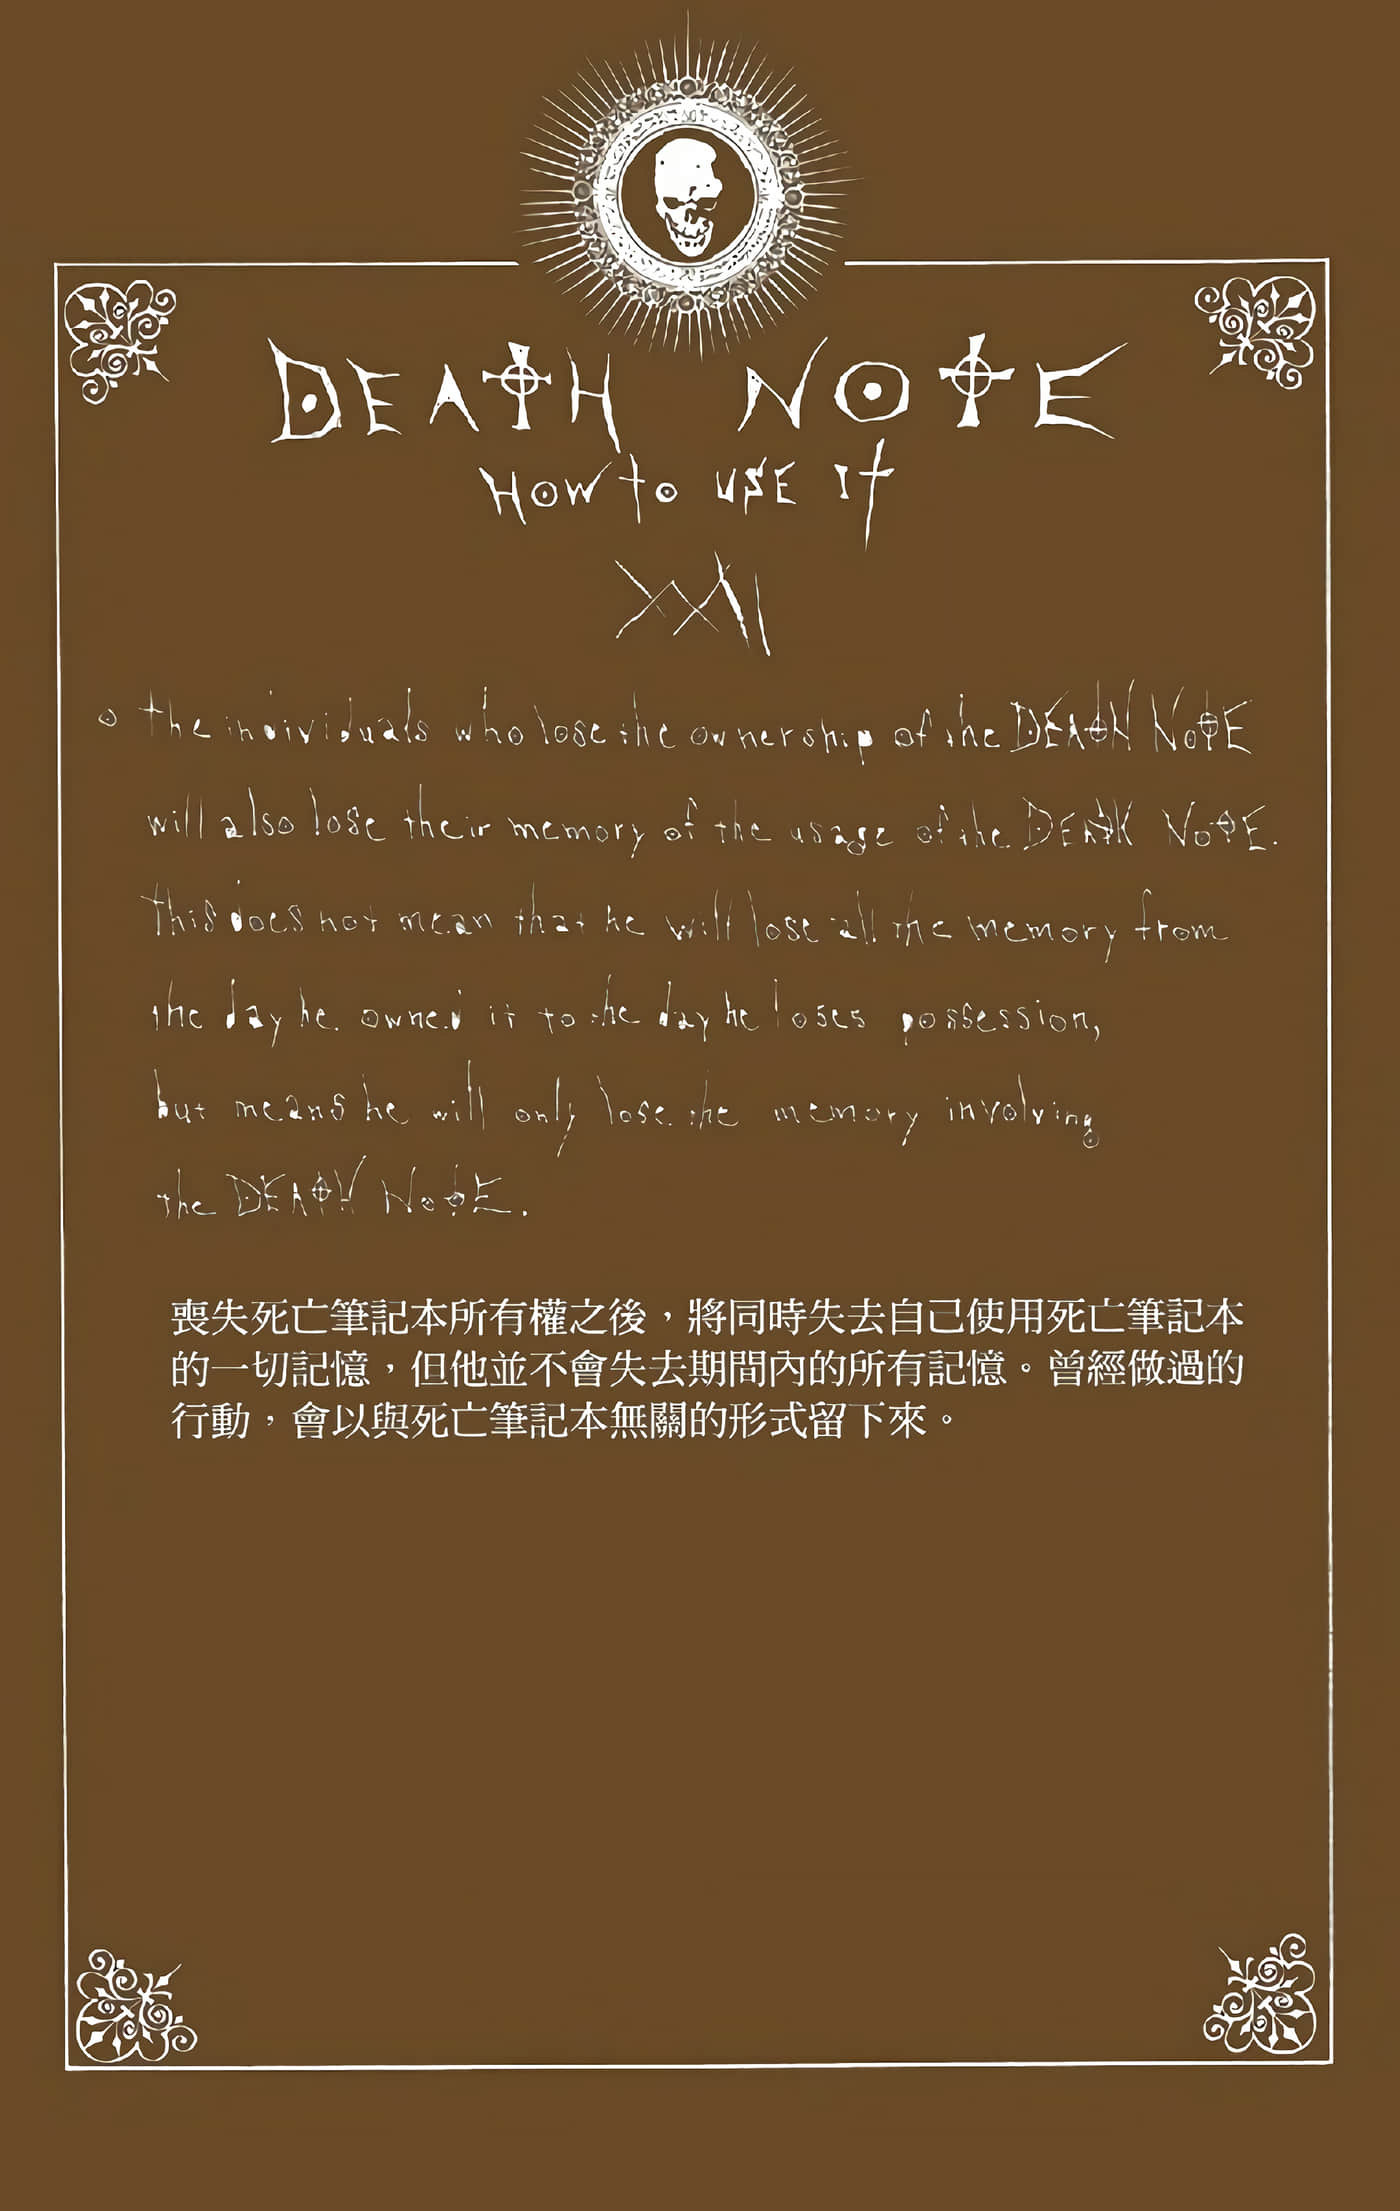 DEATH NOTE
HOW to USE It
XXII
○ the individuals who lose the ownership of the DEATH NOTE
will also lose their memory of the usage of the DEATH NOTE.
this does not mean that he will lose all the memory from
the day he owned it to the day he loses possession,
but means he will only lose the memory involving
the DEATH NOTE.
喪失死亡筆記本所有權之後，將同時失去自己使用死亡筆記本
的一切記憶，但他並不會失去期間內的所有記憶。曾經做過的
行動，會以與死亡筆記本無關的形式留下來。